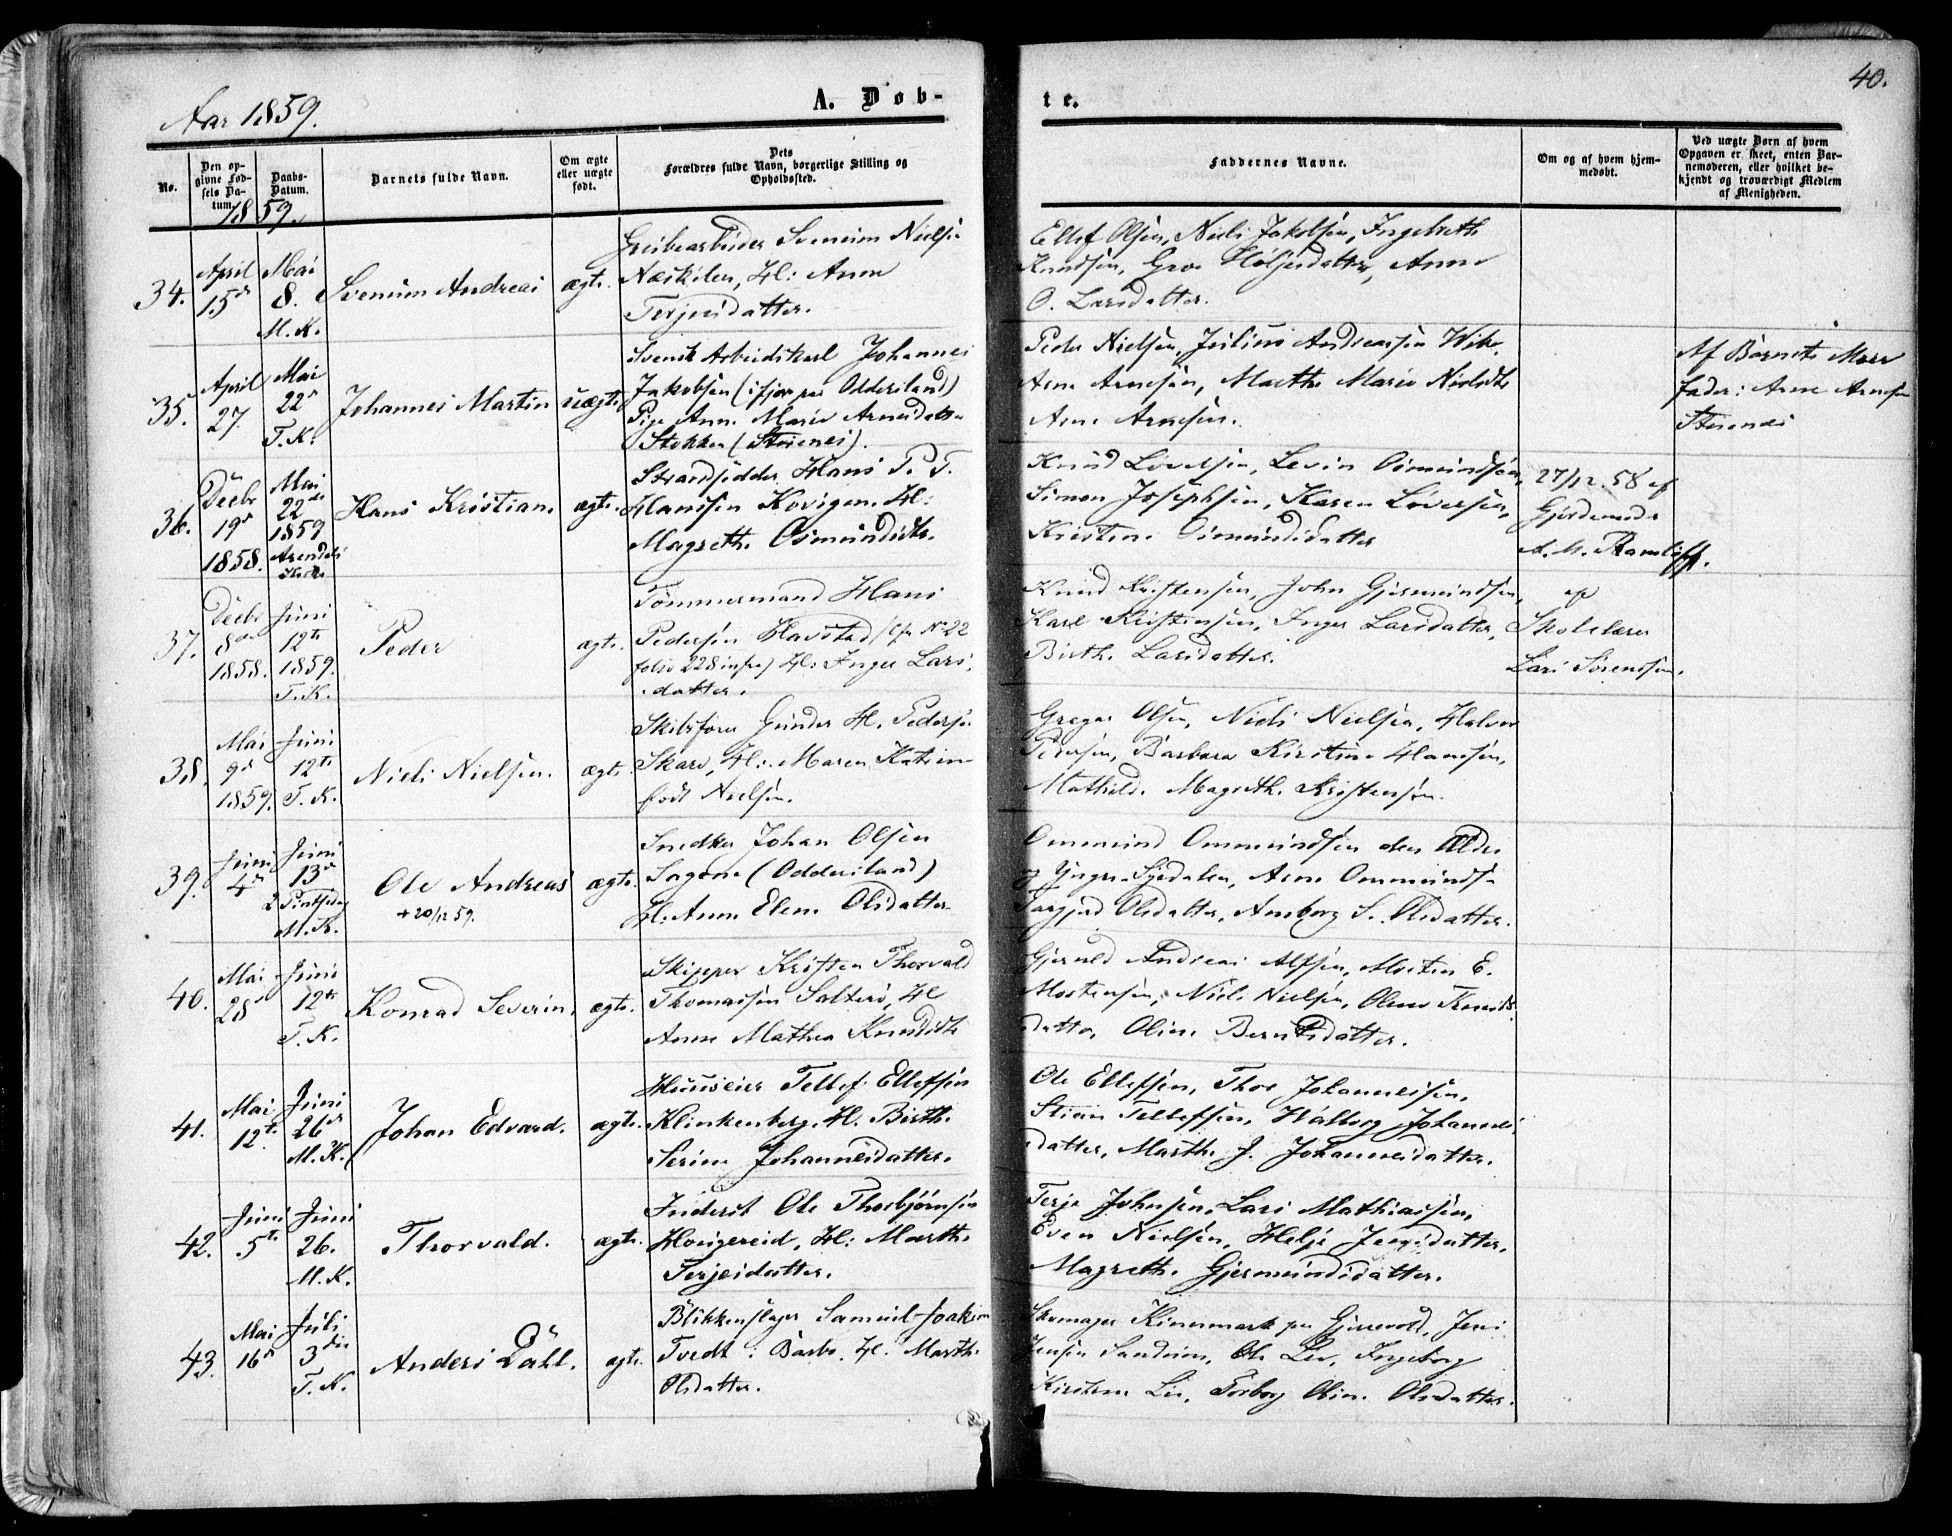 Aar 1859.
A. Døb-
te.
40.
No.
Den op-
givne Fød-
sels Da-
tum.
Daabs-
Datum.
Barnets fulde Navn.
Om ægte
eller uægte
født.
Dets
Forældres fulde Navn, borgerlige Stilling og
Opholdssted.
Faddernes Navne.
Om og af hvem hjem-
medøbt.
Ved uægte Børn af hvem
Opgaven er skeet, enten Bar-
nemoderen, eller hvilket be-
kjendt og troværdigt Medlem
af Menigheden.
1859.
34.
April
15de
Mai
8.
M. K.
Svenum Andreas
ægte.
Svenum Nielsen
Næskilen, H: Anne
Terjesdatter.
Ellef Olsen, Niels Jakobsen, Ingebreth
Knudsen, Groe Høljesdatter, Anne
O. Larsdatter.
35.
April
27.
Mai
22de
T. K.
Johannes Martin
uægte
Svensk Arbeidskarl Johannes
Jakobsen (ifjor paa Oddersland)
Pige Anne Marie Arnesdatter
Stokken (Støvenes).
Peder Nielsen, Julius Andreassen
Arne Arnesen, Marthe Marie Nielsdtr
Arne Arnesen.
Af Barnets Moer
fader: Arne Arnesen
36.
Decbr
19de
1858.
Mai
22de
1859
Arendals
Kirke
Hans Kristian.
ægte.
Strandsidder Hans P. T.
Hansen Kovigen. H:
Magrethe Osmundsdtr.
Knud Løvelsen, Levin Osmundsen,
Simon Josephsen, Karen Løvelsen,
Kirstine Osmundsdatter
27/12. 58 af
Gjordemoder
A. M. Ramløff.
37.
Decbr
8de
1858.
Juni
12te
1859.
T. K.
Peder
ægte.
Tømmermand Hans
Pedersen Havstad (cfr No 22
folio 228 infra) H: Inger Lars-
datter.
Knud Kristensen, John Gjermundsen,
Karl Kristensen, Inger Larsdatter,
Birthe Larsdatter.
af
Skolelærer
Lars Sørensen.
38.
Mai
9de
1859.
Juni
12te
T. K.
Niels Nielsen.
ægte.
Skibsfører Gunder H. Pedersen
Skare, H: Maren Katrine
født Nielsen.
Gregers Olsen, Niels Nielsen, Halvor
Pedersen, Barbara Kirstine Hansen,
Mathilde Magrethe Kristensen.
39.
Juni
4de
Juni
13de
2 Pintsedag
M. K.
Ole Andreas
+ 20/12 59.
ægte.
Snedker Johan Olsen
Sagene (Oddersland)
H: Anne Elene Olsdatter
Ommund Ommundsen den Ældre
og Yngre Sjødalen, Arne Ommunds.
Targjerd Olsdatter, Aasborg S. Olsdatter.
40.
Mai
28de
Juni
12te
T. K.
Konrad Severin.
ægte.
Skipper Kristen Thorvald
Thomassen Salterø, H:
Anne Mathea Knudsdtr
Gjeruld Andreas Alfsen, Morten E.
Mortensen, Niels Nielsen, Olene Knuds-
datter, Oline Berntsdatter.
41.
Mai
12te
Juni
26de
M. K.
Johan Edvard.
ægte.
Huuseier Tellef Ellefsen
Klinkenberg, H. Birthe
Serine Johannesdatter.
Ole Ellefsen, Thor Johannessen,
Stian Tellefsen, Walborg Johannes-
datter, Marthe J. Johannesdatter.
42.
Juni
5te
Juni
26.
M. K.
Thorvald.
ægte.
Inderst Ole Thorbjørnsen
Hougereid, H: Marthe
Terjesdatter.
Terje Johnsen, Lars Mathiassen,
Even Nielsen, Helje Jensdatter,
Magrethe Gjermundsdatter.
43.
Mai
16de
Juli
3die
T. K.
Anders Dahl.
ægte.
Blikkenslager Samuel Joakim
Tvedt i Barbo, H: Marthe
Olsdatter.
Skomager Kinnmark paa Gjerevold, Jens
Jensen Sandum, Ole Lie, Ingeborg
Kirstine Lie, Torborg Oline Olsdatter.